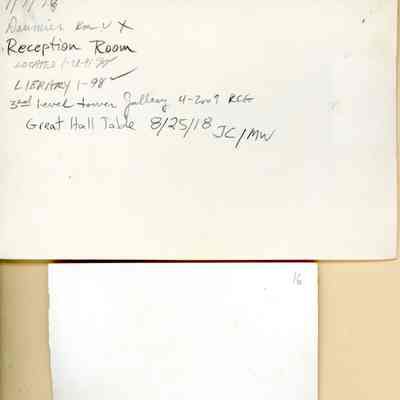 Daumier Rm ✓ X
Reception Room
LOCATED
LIBRARY 1-98 ✓
3rd level tower Gallery 4-2009 RCG
Great Hall Table 8/25/18 JC/MW
16